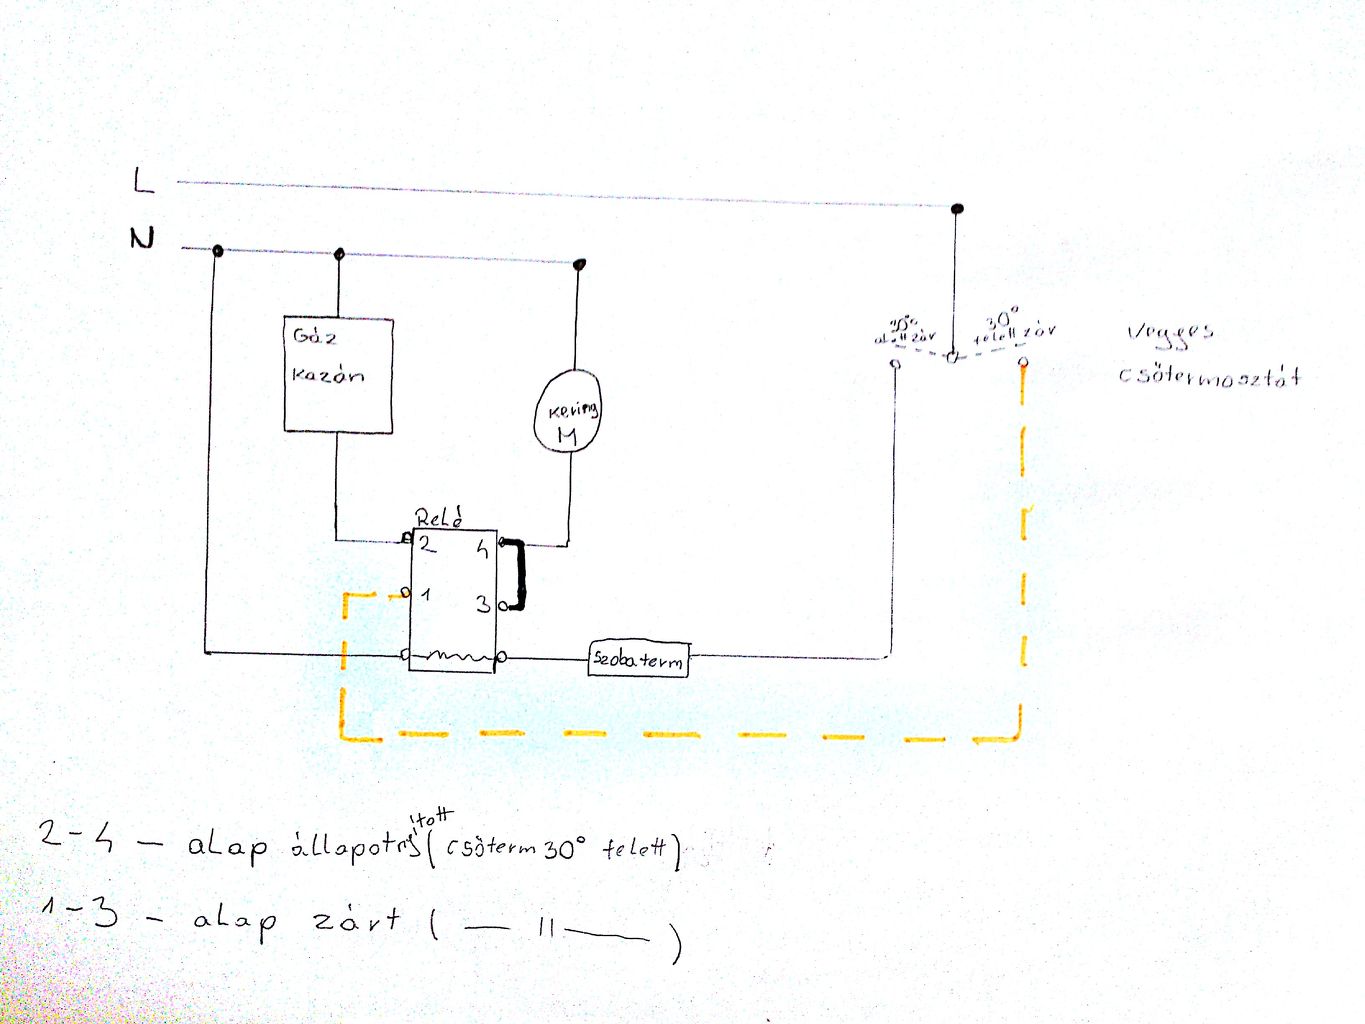 L
N
Gáz
Kazán
Kering
M
30°
alatt zár
30°
felett zár
Vegyes
csőtermosztát
Relé
2 4
1 3
Szobaterm
2-4 – alap állapot nyitott (csőterm 30° felett)
1-3 – alap zárt ( — 11 — )